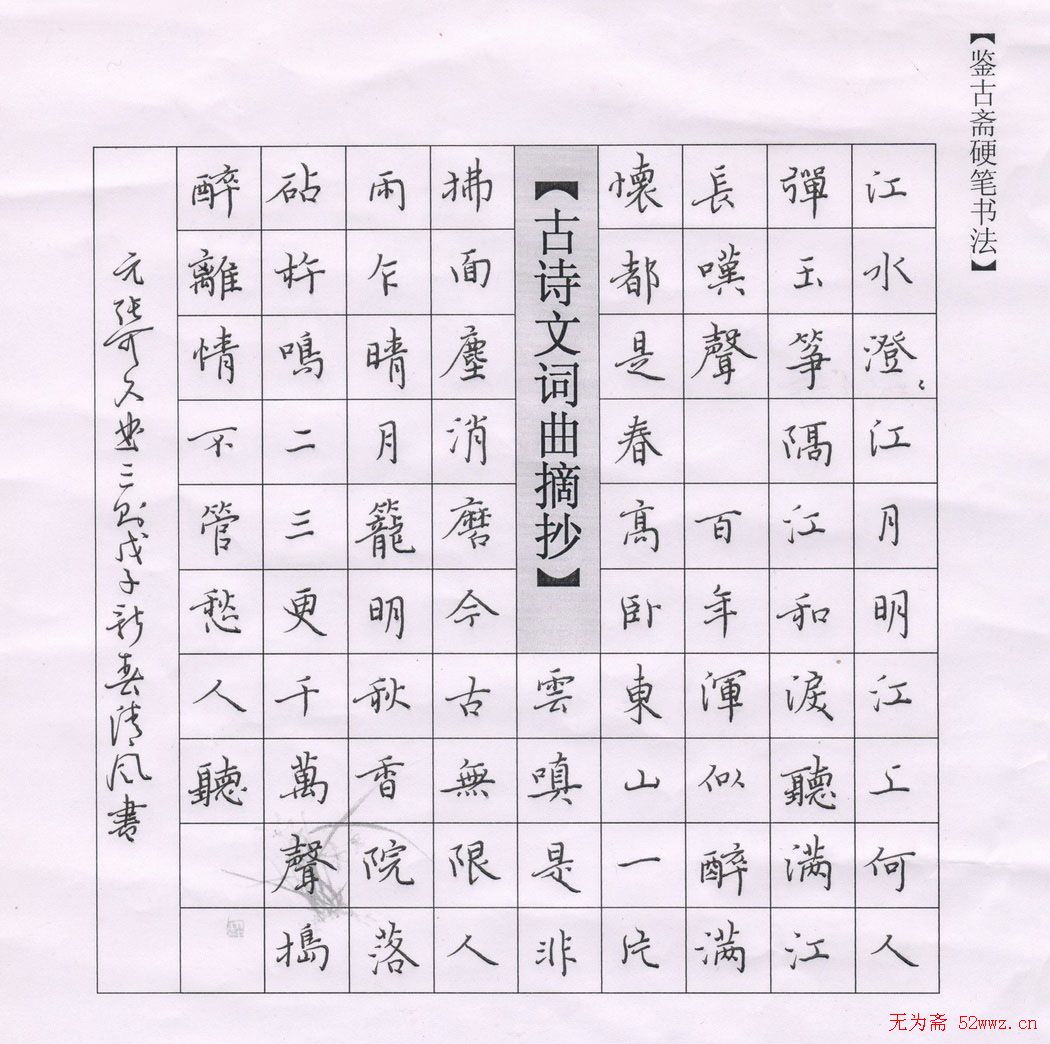 【鉴古斋硬笔书法】
江水澄〻江月明江上何人
彈玉筝隔江和淚聽满江
長嘆聲 百年渾似醉满
懷都是春高卧東山一片
【古诗文词曲摘抄】
雲嗔是非
拂面塵消磨今古無限人
雨乍晴月籠明秋香院落
砧杵鳴二三更千萬聲搗
醉離情不管愁人聽
元张可久曲三则戊子新春清风書
无为斋 52wwz.cn